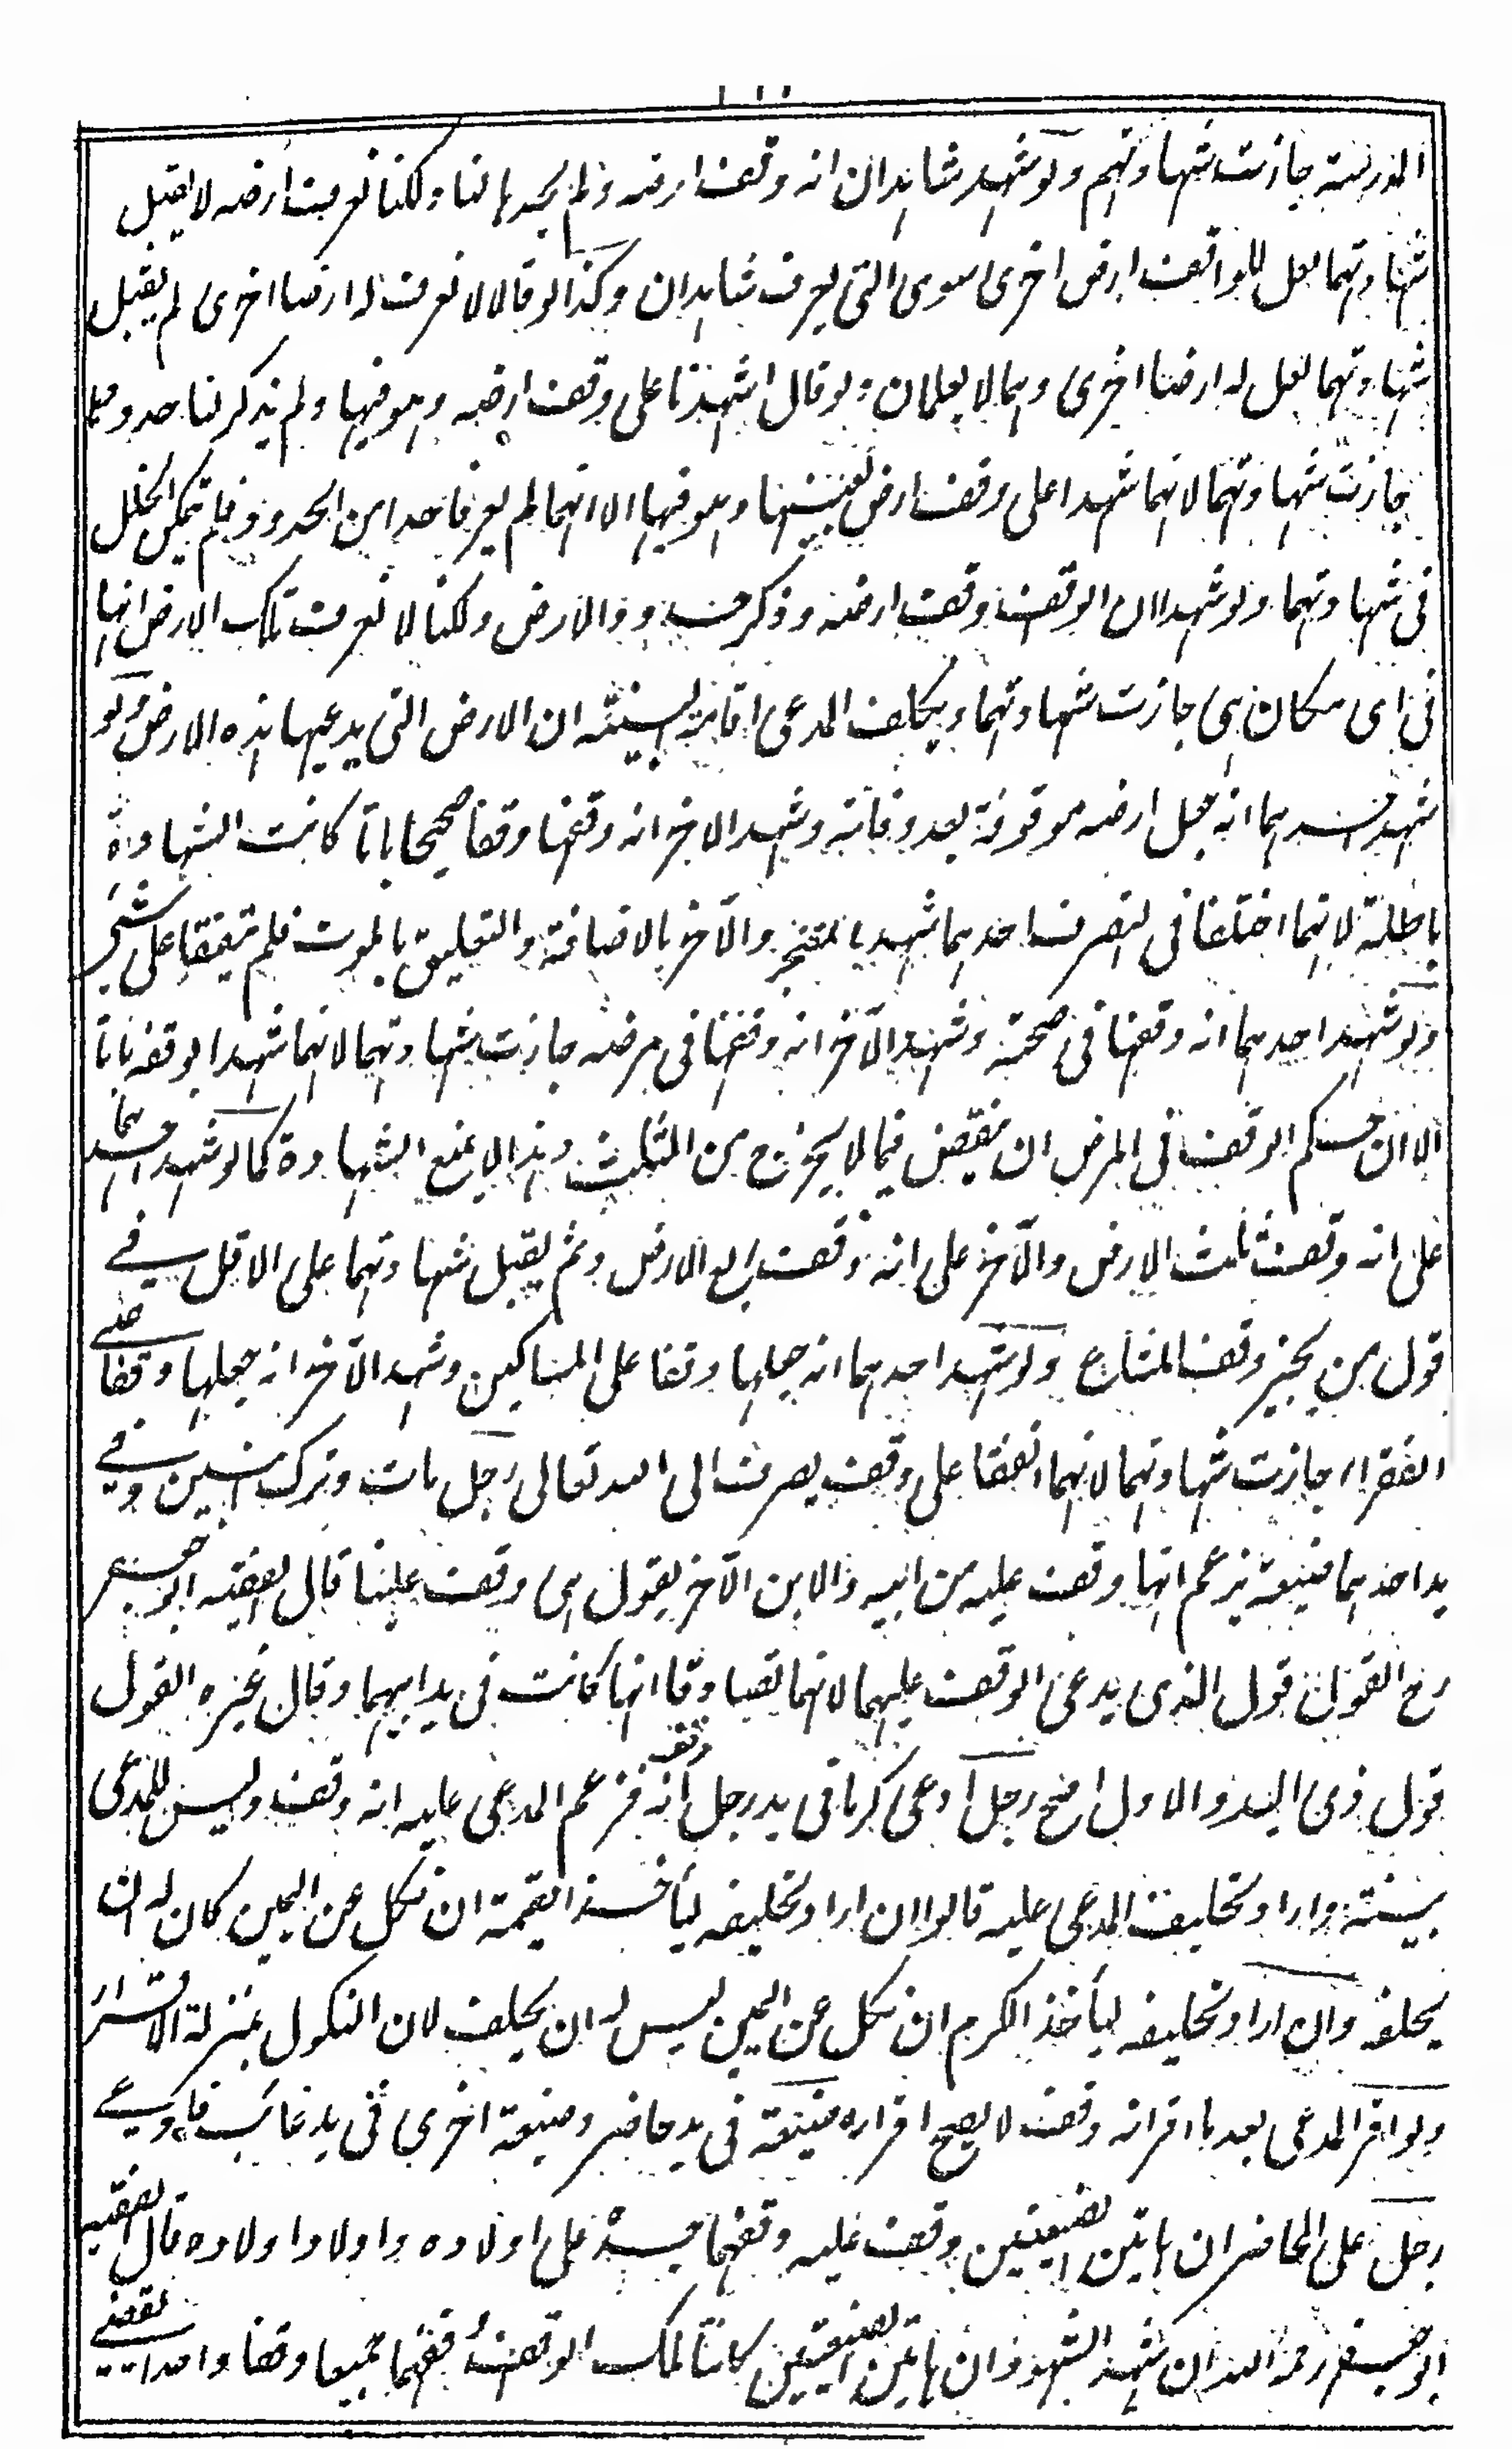 المدرسة جازت شهادتهم ولو شهد شاهدان انه وقف ارضه ولم يحدها لنا ولكنا نعرف ارضه لا يقبل
شهادتهما لعل للواقف ارض اخرى سوى التى يعرف شاهدان وكذا لو قالا لا نعرف له ارضا اخرى لم يقبل
شهادتهما لعل له ارضا اخرى وهما لا يعلمان ولو قال اشهدنا على وقف ارضه وهو فيها ولم يذكر لنا حدودها
جازت شهادتهما لانهما شهدا على وقف ارض بعينها وهو فيها الا انهما لم يعرفا حدا من الحدود فلم يتمكن الخلل
فى شهادتهما ولو شهدا ان الوقف وقف ارضه وذكر حدود الارض ولكنا لا نعرف تلك الارض انها
فى اى مكان هى جازت شهادتهما ويكلف المدعى اقامة البينة ان الارض التى يدعيها هذه الارض ولو
شهد احدهما انه جعل ارضه موقوفة بعد وفاته وشهد الاخر انه وقفها وقفا صحيحا باتا كانت الشهادة
باطلة لانهما اختلفا فى التصرف احدهما شهد بالمنجز والآخر بالاضافة والتعليق بالموت فلم يتفقا على شئ
ولو شهد احدهما انه وقفها فى صحته وشهد الآخر انه وقفها فى مرضه جازت شهادتهما لانهما شهدا بوقف باتا
الا ان حكم الوقف فى المرض ان ينقض فيما لا يخرج من الثلث وهذا لا يمنع الشهادة كما لو شهد احدهما
على انه وقف ثلث الارض والآخر على انه وقف ربع الارض وثم يقبل شهادتهما على الاقل فى
قول من يجيز وقف المشاع ولو شهد احدهما انه جعلها وقفا على المساكين وشهد الآخر انه جعلها وقفا على
الفقراء جازت شهادتهما لانهما اتفقا على وقف يصرف الى الله تعالى رجل مات وترك ابنين وفى
يد احدهما ضيعة يزعم انها وقف عليه من ابيه والابن الآخر يقول هى وقف علينا قال الفقيه ابو جعفر
رح القول قول الذى يدعى الوقف عليهما لانهما تصادقا انها كانت فى يد ابيهما وقال غيره القول
قول ذى اليد والاول اصح رجل ادعى كرما فى يد رجل انه وقف فزعم المدعى عليه انه وقف وليس للمدعى
بينة واراد تحليف المدعى عليه قالوا ان اراد تحليفه ليأخذ القيمة ان نكل عن اليمين كان له ان
يحلفه وان اراد تحليفه ليأخذ الكرم ان نكل عن اليمين ليس له ان يحلف لان النكول بمنزلة الاقرار
ولو اقر المدعى بعد ما اقر انه وقف لا يصح اقراره ضيعة فى يد حاضر وضيعة اخرى فى يد غائب فادعى
رجل على الحاضر ان هاتين الضيعتين وقف عليه وقفهما جده على اولاده واولاد اولاده قال الفقيه
ابو جعفر رحمه الله ان شهد الشهود ان هاتين الضيعتين كانتا لملك الوقف وقفهما جميعا وقفا واحدا يقضى